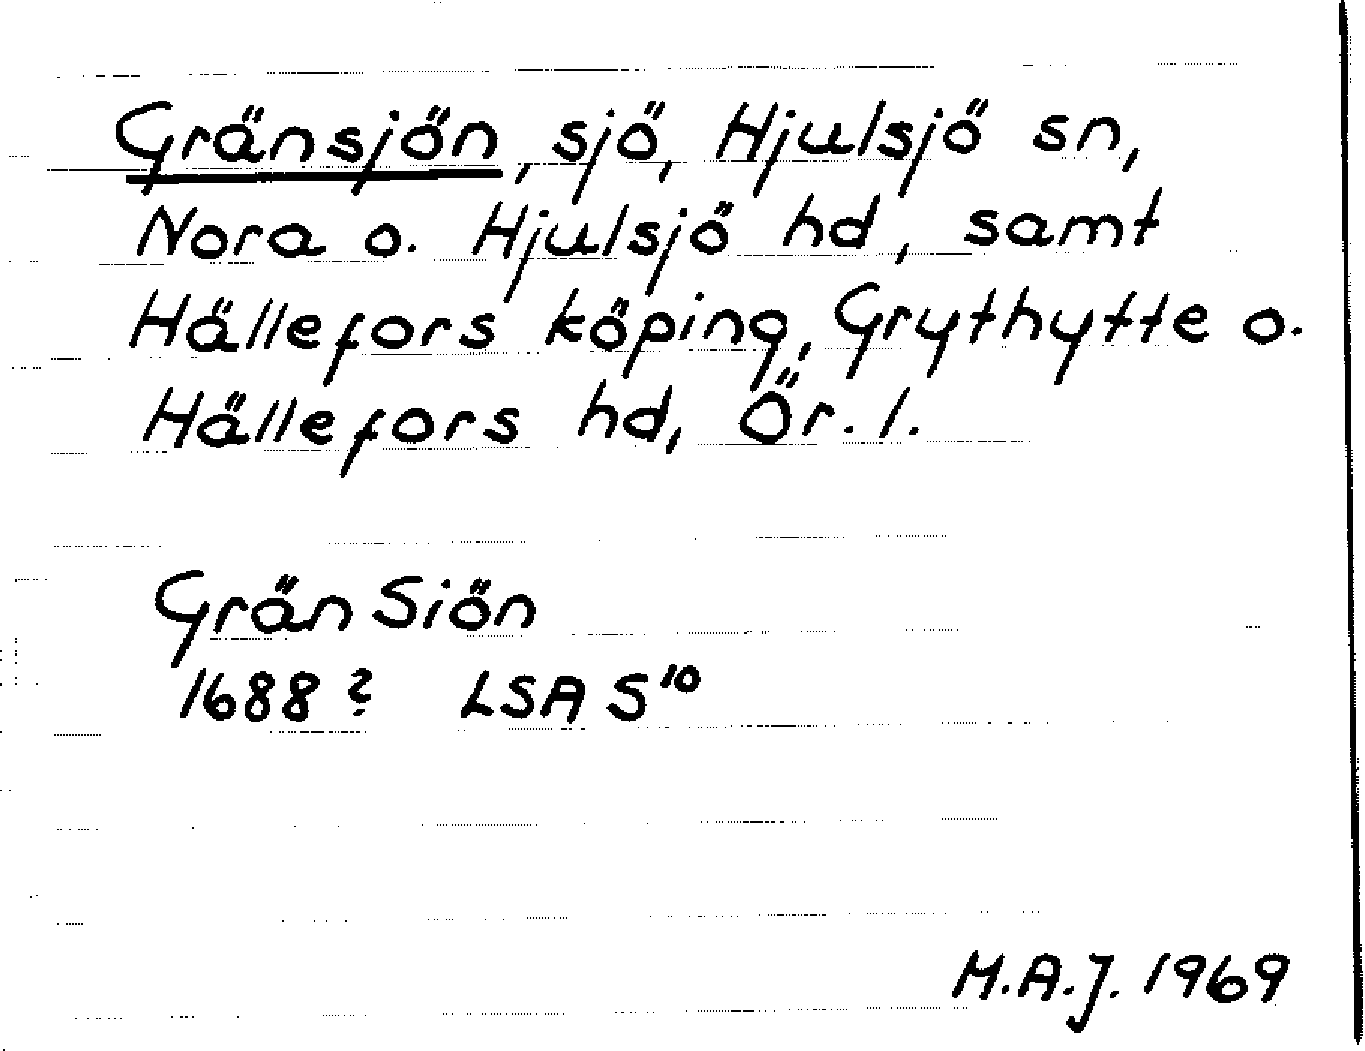 Gränsjön, sjö, Hjulsjö sn,
Nora o. Hjulsjö hd, samt
Hällefors köping, Grythytte o.
Hällefors hd, Ör. l.
Grän Siön
1688? LSA S¹⁰
M.A.J. 1969